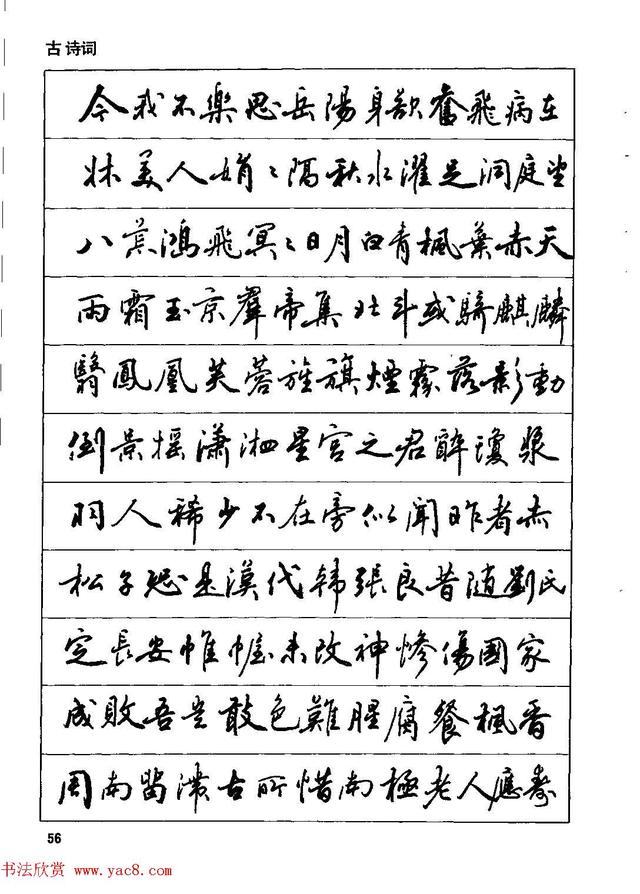 古诗词
今我不樂思岳陽身欲奮飛病在
牀美人娟〻隔秋水濯足洞庭望
八荒鴻飛冥〻日月白青楓葉赤天
雨霜玉京羣帝集北斗或騎麒麟
翳鳳凰芙蓉旌旗煙霧落影動
倒景摇瀟湘星宮之君醉瓊漿
羽人稀少不在旁似聞昨者赤
松子恐是漢代韓張良昔隨劉氏
定長安帷幄未改神慘傷國家
成敗吾豈敢色難腥腐餐楓香
周南留滯古所惜南極老人應壽
56
书法欣赏 www.yac8.com